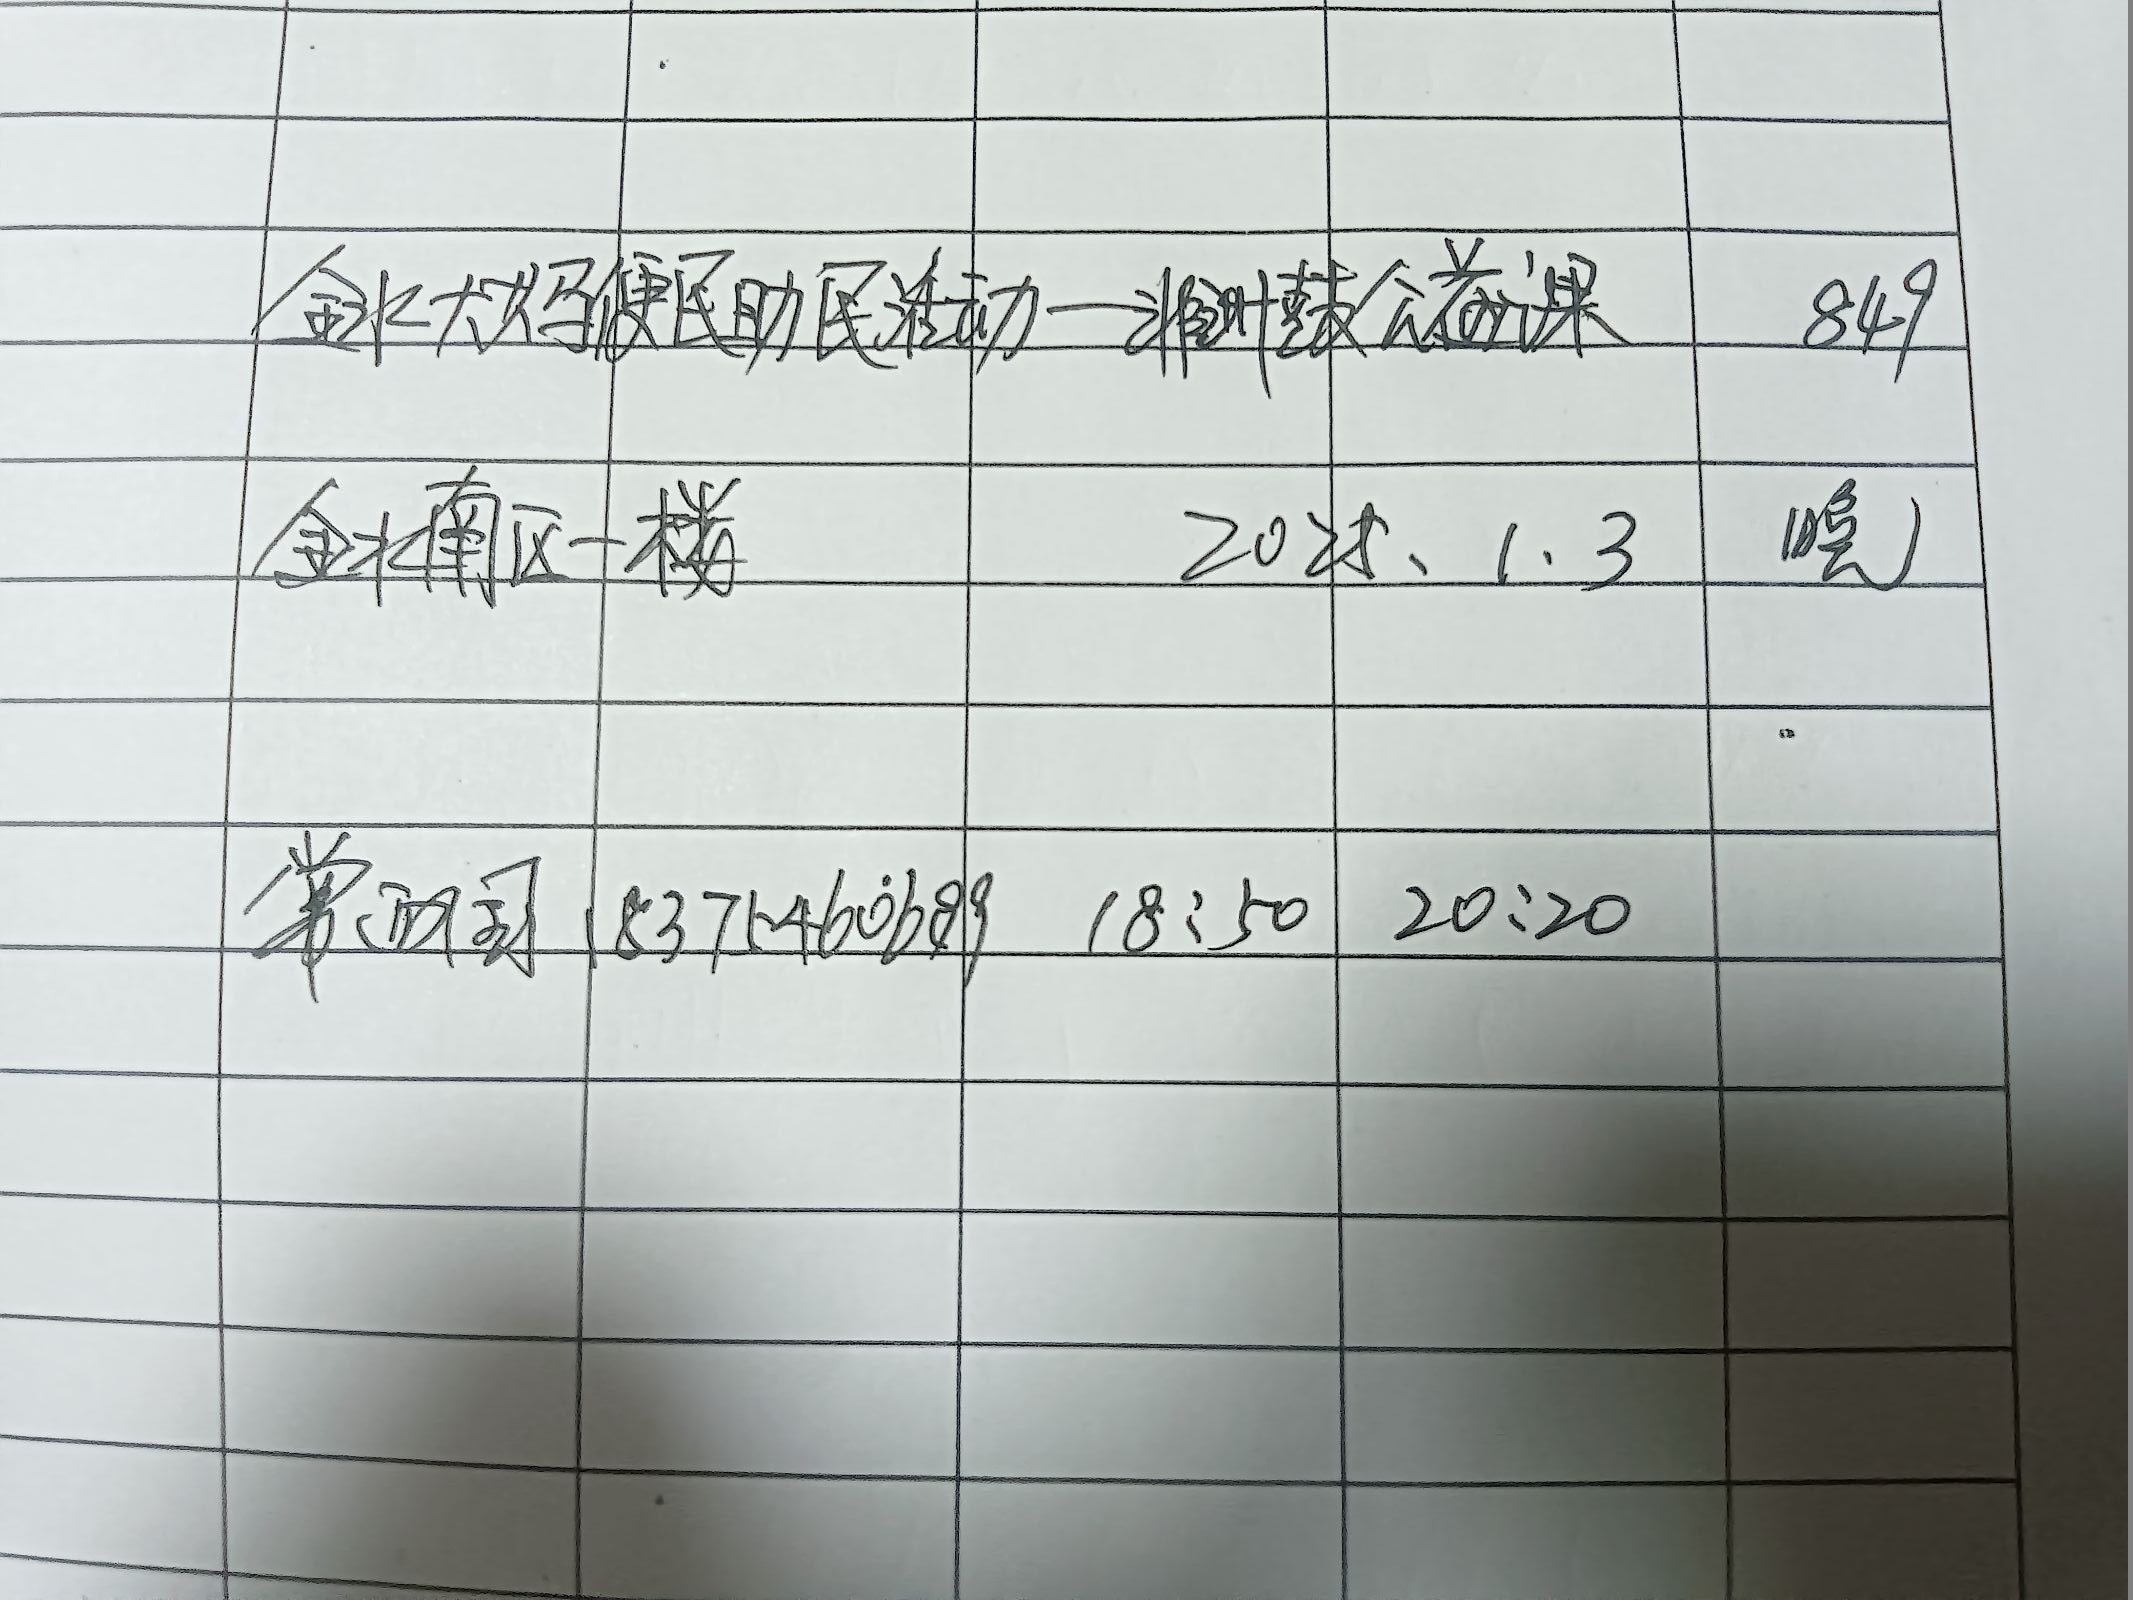 金水大妈便民助民活动一非洲鼓公益课 849
金水南区一楼 2025、1.3 晚
常 18:50 20:20